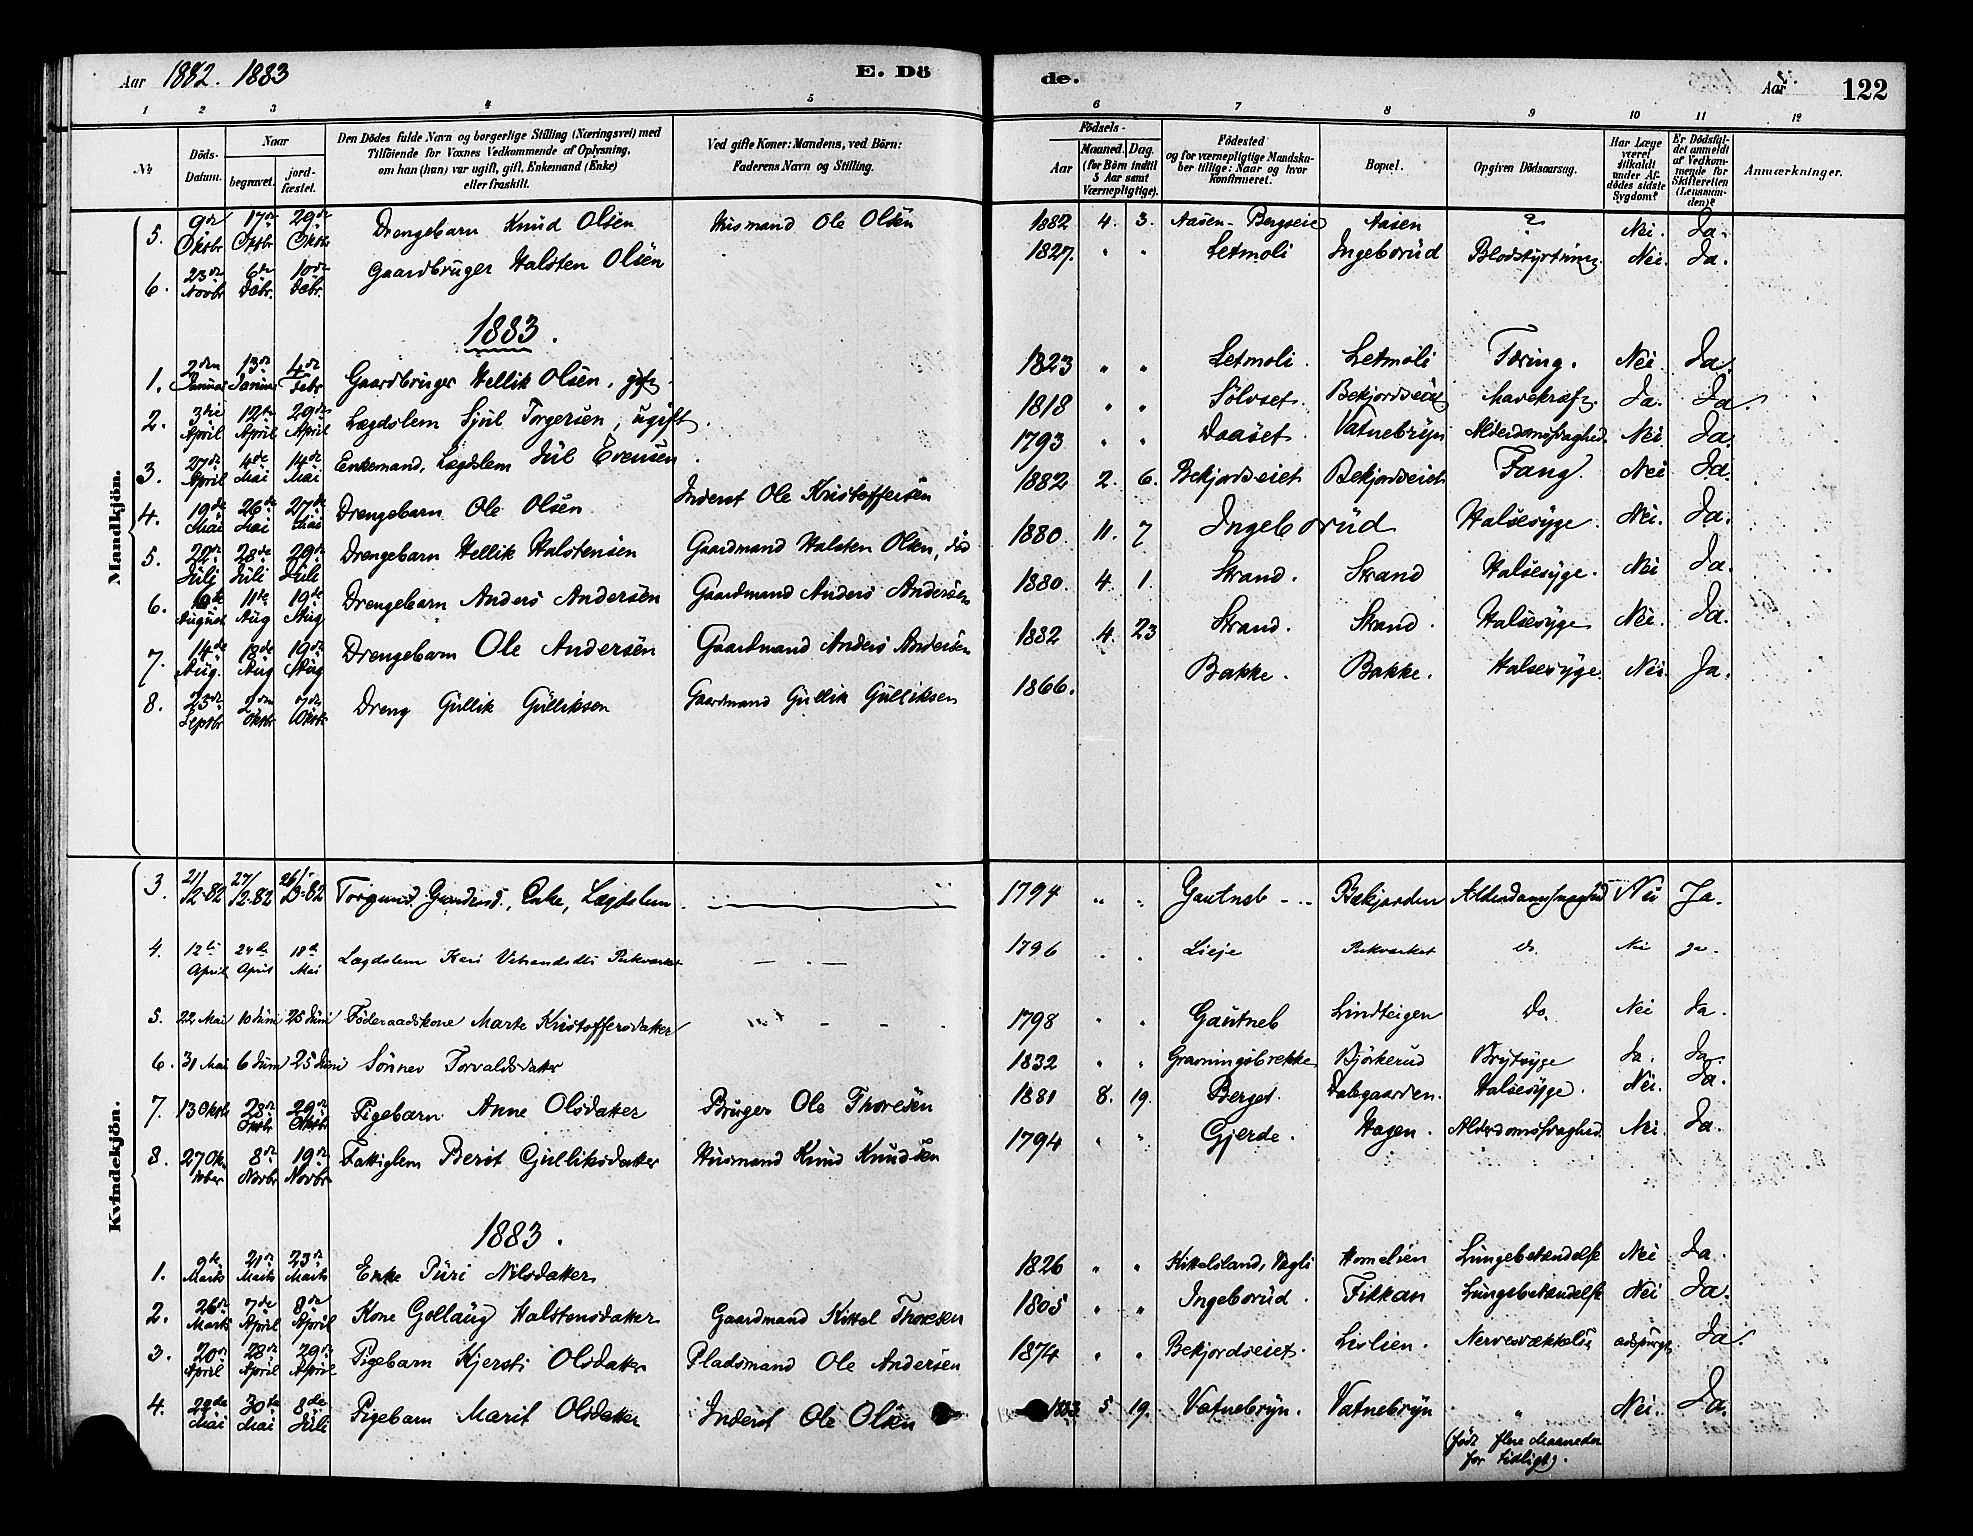 Aar 1882. 1883 E. Dö de. Aar 122
1 2 3 4 5 6 7 8 9 10 11 12
No. Döds-Datum. Naar begravet. jordfæstet. Den Dödes fulde Navn og borgerlige Stilling (Næringsvei) med Tilföiende for Voxnes Vedkommende af Oplysning, om han (hun) var ugift, gift, Enkemand (Enke) eller fraskilt. Ved gifte Koner: Mandens, ved Börn: Faderens Navn og Stilling. Födsels- Aar Maaned. Dag. (for Börn indtil 5 Aar samt Værnepligtige). Födested og for værnepligtige Mandskaber tillige: Naar og hvor Konfirmeret. Bopæl. Opgiven Dödsaarsag. Har Læge været tilkaldt under Afdödes sidste Sygdom? Er Dödsfaldet anmeldt af Vedkommende for Skifteretten (Lensmanden)? Anmærkninger.
Mandkjön.
5. 9de Oktbr 17de Oktbr 29de Oktbr Drengebarn Knud Olsen Husmand Ole Olsen 1882 4. 3. Aasen-Bergseie Aasen ? Nei. Ja.
6. 23de Novbr 6te Decbr. 10de Decbr. Gaardbruger Halsten Olsen 1827. " " Letmoli Ingeborud Blodstyrtning. Nei. Ja.
1883.
1. 2den Januar 13de Januar 4de Febr Gaardbruger Hellik Olsen, gift. 1823 " " Letmoli. Letmoli Tæring. Nei. Ja.
2. 3die April 12te April 29de April Lægdslem Sjul Torgersen, ugift. 1818 " " Sölvset. Bekjordseiet Mavekræft. Ja. Ja.
3. 27de April 4de Mai 14de Mai Enkemand, Lægdslem Jül Evensen. 1793 " " Daaset. Vatnebryn Alderdomssvaghed. Nei. Ja.
4. 19de Mai 26de Mai 27de Mai Drengebarn Ole Olsen Inderst Ole Kristoffersen 1882 2. 6. Bekjordseiet Bekjordseiet Fang. Nei Ja.
5. 22de Juli 28de Juli 29de Juli Drengebarn Hellik Halstensen Gaardmand Halsten Olsen, död 1880. 11. 7 Ingeborüd Halsesyge. Nei. Ja.
6. 10de August 11te Aug 19de Aug Drengebarn Anders Andersen Gaardmand Anders Andersen 1880. 4. 1. Strand. Strand Halsesyge. Nei Ja.
7. 14de Aug. 18de Aug 19de Aug Drengebarn Ole Andersen Gaardmand Anders Andersen 1882 4. 23 Strand. Strand. Halsesyge Nei. Ja.
8. 25de Septbr 2den Oktbr 7de Oktbr Dreng Güllik Gülliksen Gaardmand Gullik Gulliksen 1866. Bakke. Bakke. Halsesyge Nei. Ja.
Kvindekjön.
3. 21/2-82 27/2-82 26/3-82 Torgund Gundersd., Enke, Lægdslem. 1794 " " Gautneb Bækjorden Alderdomssvaghed Nei Ja.
4. 12te April 24de April 18de Mai Lægdslem Kari Pukverket 1796 " " Lieje Pukverket Do. Nei Ja.
5. 22 Mai 10 Juni 25 Juni Föderaadskone Marte Kristoffersdatter 1798 " " Gautneb Lindteigen Do. Nei Ja.
6. 31 Mai 6 Juni 25 Juni Sönnev Torvaldsdatter 1832 " " Gravningsbrekke Björkerud Brytsyge Ja. Ja.
7. 13 Oktbr 28de Oktbr 29de Oktbr Pigebarn Anne Olsdatter Bruger Ole Thoresen 1881 8. 19. Berget. Dalsgaarden. Halsesyge. Nei. Ja.
8. 27 Oktober 8de Novbr 19de Novbr Fattiglem Berit Gulliksdatter Husmand Knud Knudsen 1794 " " Gjerde. Hagen. Alderdomssvaghed. Nei. Ja.
1883.
1. 9de Marts 21de Marts 23de Marts Enke Püri Nilsdatter 1826 " " Kittelsland, Vegli Homelien Lungebetændelse Nei Ja.
2. 26de Marts 7de April 8de April Kone Gollaug Halstensdatter Gaardmand Kittel Thoresen 1805 " " Ingeborud. Fikkan Lungebetændelse Nei Ja.
3. 20de April 28de April 29de April Pigebarn Kjersti Olsdatter Pladsmand Ole Andersen 1874 " " Bekjordseiet. Lislien. adspurgt Ja.
4. 29de Mai 30te Mai 8de Juli Pigebarn Marit Olsdatter Inderst Ole Olsen 1883 5 19. Vatnebryn. Vatnebryn " Nei. Ja.
(född flere Maaneder
for tidligt).